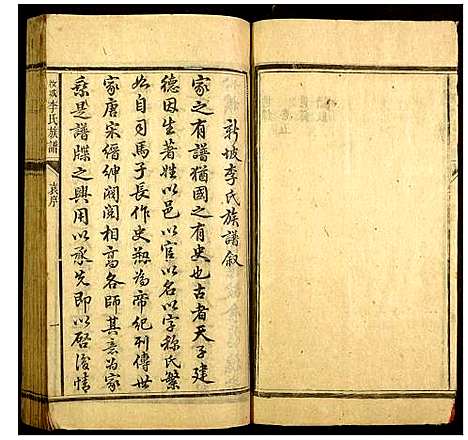 新坡李氏族譜叙
家之有譜猶國之有史也古者天子建
德因生著姓以邑以官以名以字稱氏繁
始自司馬子長作史剏為帝紀列傳世
家唐宋縉紳閥閱相高各師其意為家
乘是譜牒之興用以承先即以啓後情
李氏族譜
袁序
一